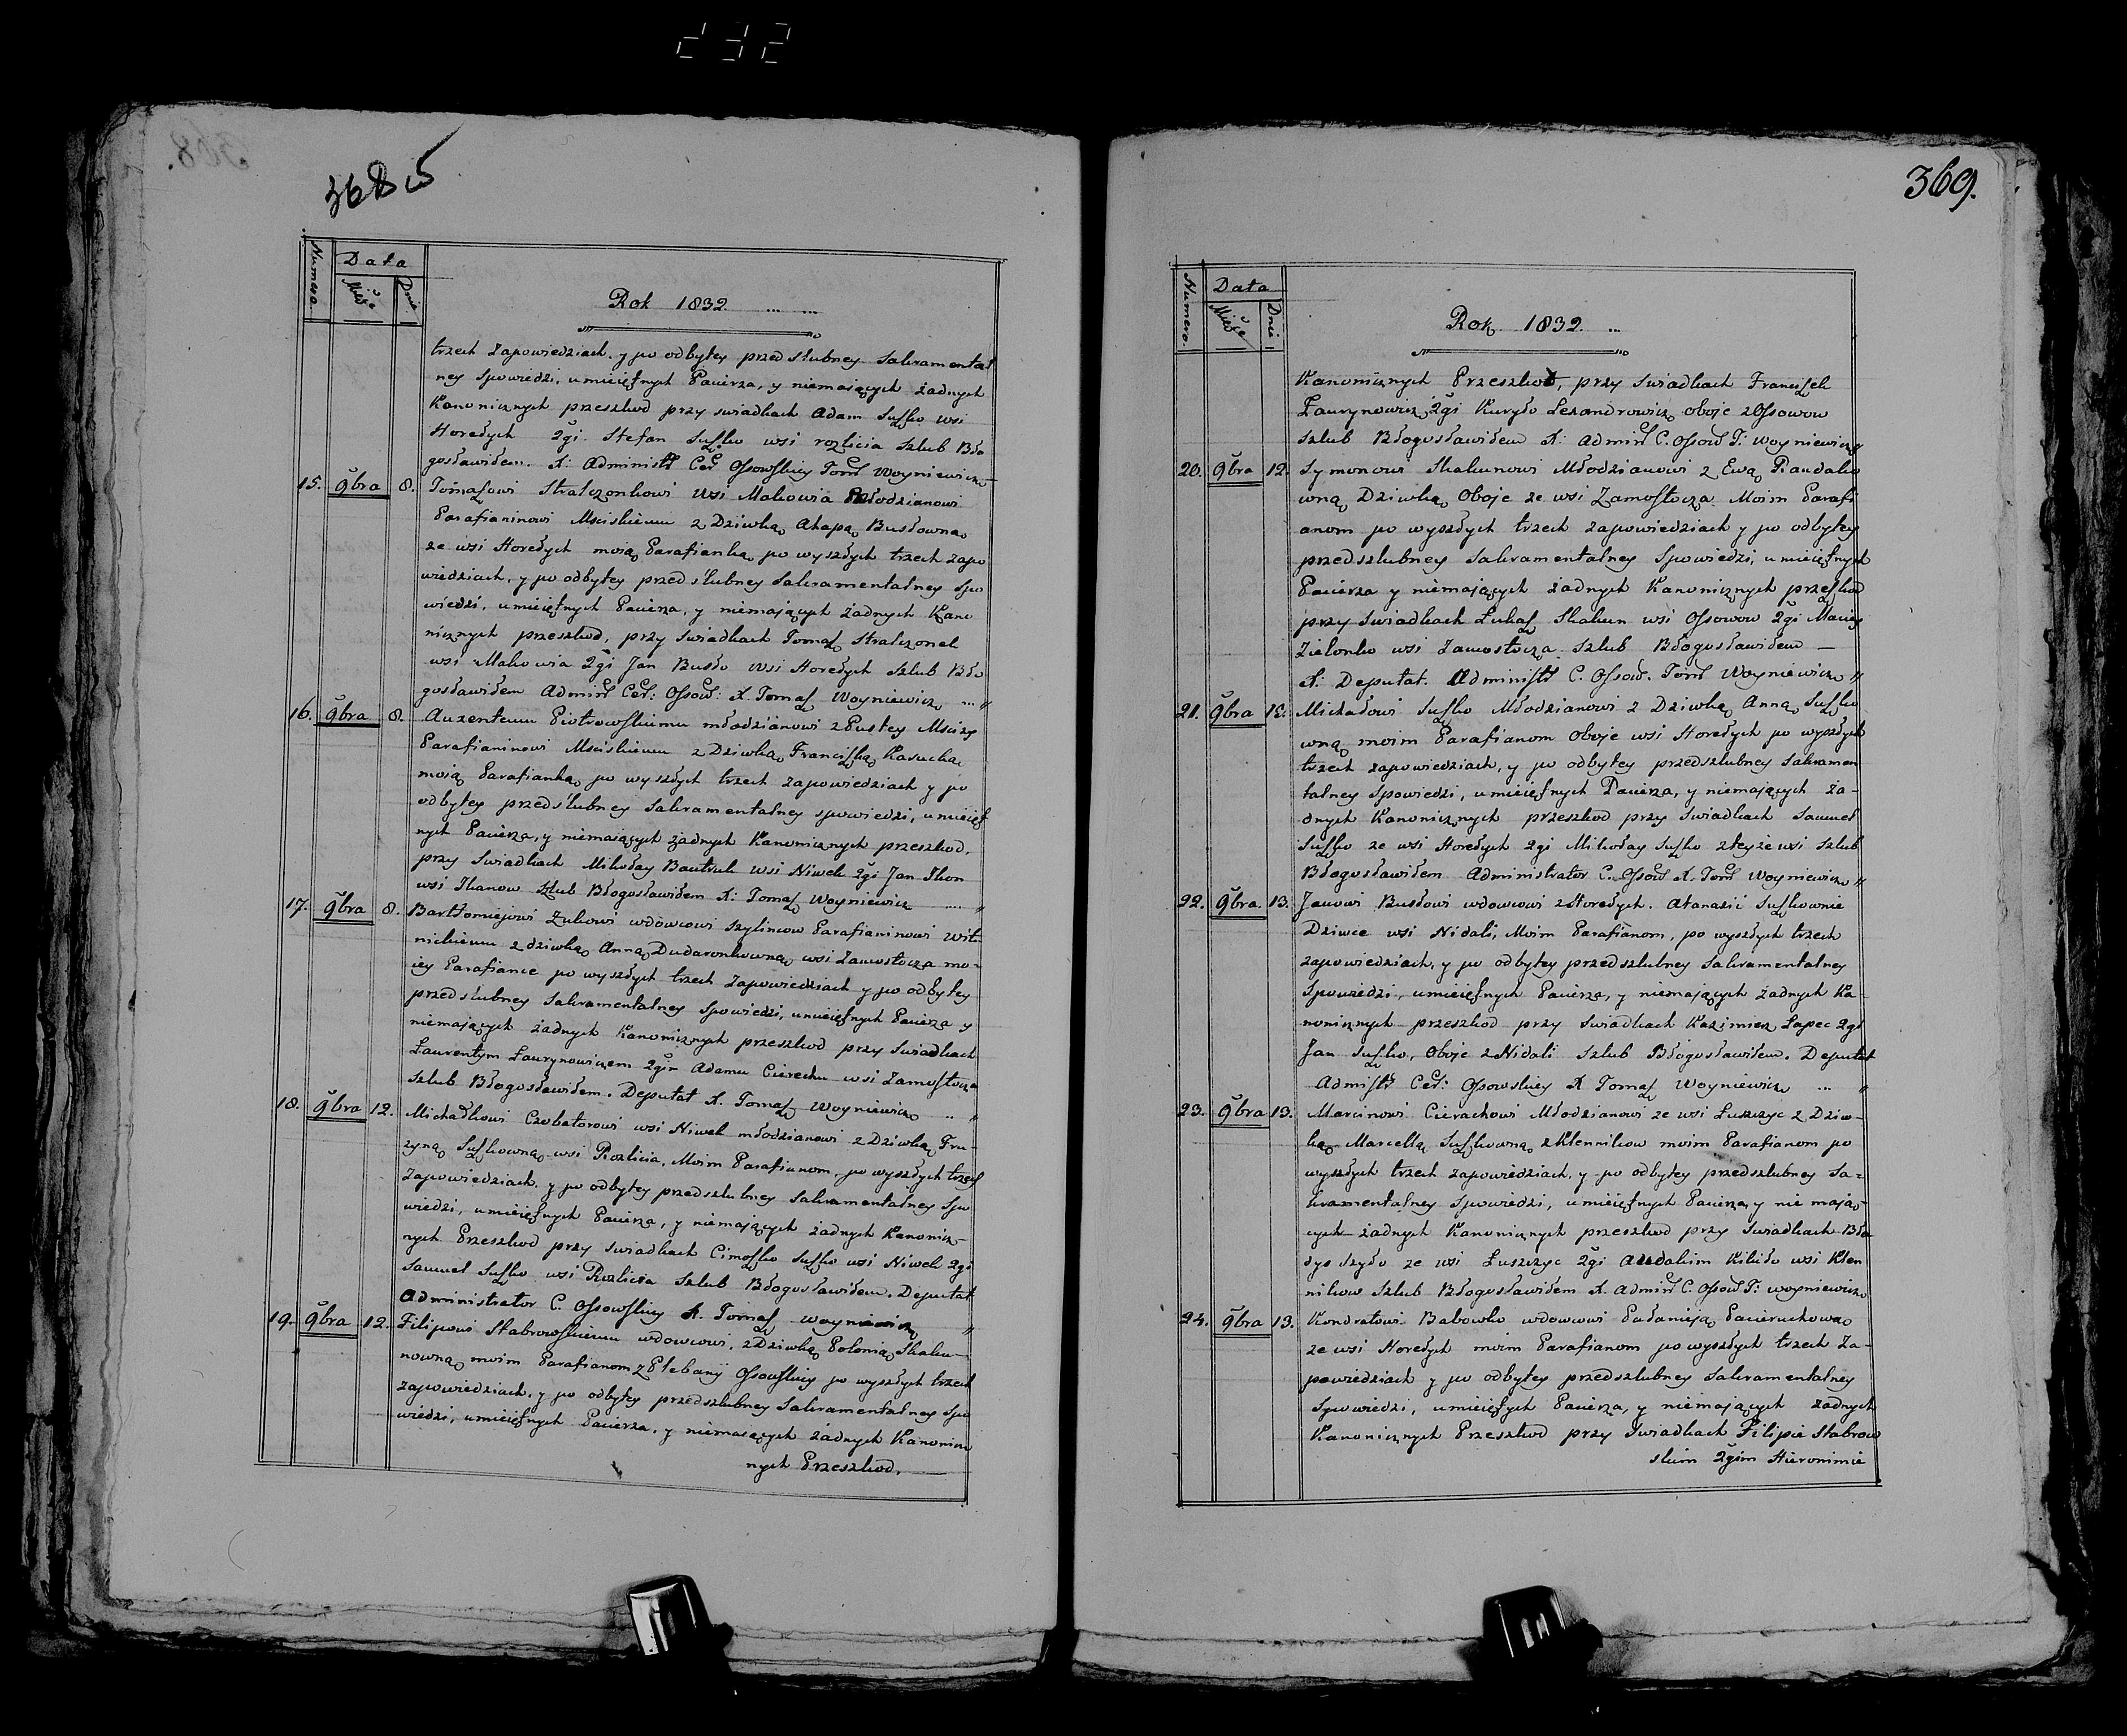 368
369.
Numero.
Data
Miesc
Dnie
Rok 1832.
trzech zapowiedziach. y po odbytey przed slubney Sakramental
ney Spowiedzi, umieiętnych Pacierza, y niemaiących żadnych
Kanonicznych przeszkod przy swiadkach Adam Suszko wsi
Horełych 2gi. Stefan Suszko wsi rozlicia Szlub Bło
gosławiłem. X: Administr Cer Ossowskiey Tom Woyniewicz
15. 9bra 8. Tomaszowi Stralczonkowi wsi Makowia Młodzianowi
Parafianinowi Msciskiemu z Dziwką Ahapą Busłowną
ze wsi Horełych moią Parafianką po wyszłych trzech zapo
wiedziach, y po odbytey przed slubney Sakramentalney Spo
wiedzi, umieiętnych Pacierza, y niemaiących żadnych Kano
nicznych przeszkod, przy swiadkach Tomasz Stralczonek
wsi Makowia 2gi Jan Busło wsi Horełych Szlub Bło
gosławiłem Admin Cer: Ossow: X. Tomasz Woyniewicz
16. 9bra 8. Auxentemu Piotrowskiemu młodzianowi z Pustey Mscizy
Parafianinowi Msciskiemu z Dziwką Franciszką Kasucką
moią Parafianką po wyszłych trzech zapowiedziach y po
odbytey przed slubney Sakramentalney spowiedzi, umieięt
nych Pacierza, y niemaiących żadnych Kanonicznych przeszkod,
przy Swiadkach Mikołay Bautruk wsi Niwek 2gi Jan Ikon
wsi Ikanow Szlub Błogosławiłem X: Tomasz Woyniewicz
17. 9bra 8. Bartłomiejowi Zukowi wdowcowi Szylincow Parafianinowi Wit-
nickiemu z dziwką Anną Dudaronkowną wsi Zamostocza mo-
iey Parafiance po wyszłych trzech Zapowiedziach y po odbytey
przed slubney Sakramentalney Spowiedzi, umieiętnych Pacierza y
niemaiących żadnych Kanonicznych przeszkod przy Swiadkach
Laurentym Laurynowiczem 2gim Adamu Cierechu wsi Zamostocza
Szlub Błogosławiłem. Deputat X. Tomasz Woyniewicz
18. 9bra 12. Michałkowi Czobotorowi wsi Niwek młodzianowi z Dziwką Fru-
zyną Suszkowną wsi Rozlicia, Moim Parafianom, po wyszłych trzech
Zapowiedziach. y po odbytey przedszlubney Sakramentalney Spo
wiedzi, umieiętnych Pacierza, y niemaiących żadnych Kanonicz-
nych Przeszkod przy swiadkach Cimoszko Suszko wsi Niwek 2gi
Samuel Suszko wsi Rozlicia Szlub Błogosławiłem. Deputat
Administrator C. Ossowskiey X. Tomasz Woyniewicz
19. 9bra 12. Filipowi Stabrowskiemu wdowcowi, z Dziwką Polonią Skaku-
nowną moim Parafianom z Plebanij Ossowskiey po wyszłych trzech
Zapowiedziach. y po odbytey przedszlubney Sakramentalney Spo
wiedzi, umieiętnych Pacierza. y niemaiących żadnych Kanonicz
nych Przeszkod,
Numero.
Data
Miesc
Dnie
Rok 1832.
Kanonicznych Przeszkod, przy swiadkach Franciszek
Laurynowicz, 2gi Kuryło Lexandrowicz oboje z Ossowow
Szlub Błogosławiłem X: Admin C. Ossow T: Woyniewicz
20. 9bra 12. Symonowi Skakunowi Młodzianowi z Ewą Randako
wną Dziwką Oboje ze wsi Zamostocza Moim Parafi
anom po wyszłych trzech zapowiedziach y po odbytey
przedszlubney Sakramentalney Spowiedzi, umieiętnych
Pacierza y niemaiących żadnych Kanonicznych przeszkod
przy Swiadkach Łukasz Skakun wsi Ossowow 2gi Maciey
Zielonko wsi Zamostocza Szlub Błogosławiłem
X: Deputat. Administr C. Ossow. Tom Woyniewicz
21. 9bra 13. Michałowi Suszko Młodzianowi z Dziwką Anną Suszko
wną moim Parafianom Oboje wsi Horełych po wyszłych
trzech zapowiedziach, y po odbytey przedszlubney Sakramen
talney Spowiedzi, umieiętnych Pacierza, y niemaiących ża-
dnych Kanonicznych przeszkod przy Swiadkach Samuel
Suszko ze wsi Horełych 2gi Mikołay Suszko z teyże wsi Szlub
Błogosławiłem Administrator C. Ossow X. Tom Woyniewicz
22. 9bra. 13. Janowi Busłowi wdowcowi z Horełych. Atanazii Suszkownie
Dziwce wsi Nidali, Moim Parafianom, po wyszłych trzech
zapowiedziach, y po odbytey przedszlubney Sakramentalney
Spowiedzi, umieiętnych Pacierza, y niemaiących żadnych Ka-
nonicznych przeszkod przy swiadkach Kazimierz Łapec 2gi
Jan Suszko, Oboje z Nidali Szlub Błogosławiłem. Deputat
Admistr Cer: Ossowskiey X Tomasz Woyniewicz
23. 9bra 13. Marcinowi Cierachowi Młodzianowi ze wsi Łuszczyc z Dziw-
ką Marcellą Suszkowną z Klennikow moim Parafianom po
wyszłych trzech zapowiedziach, y po odbytey przedszlubney Sa-
kramentalney Spowiedzi, umieiętnych Pacierza y nie maią-
cych żadnych Kanonicznych przeszkod przy Swiadkach Bła
dys Szydo ze wsi Łuszczyc 2gi Audakim Kikiło wsi Klen
nikow Szlub Błogosławiłem X. Admin C. Ossow T: Woyniewicz
24. 9bra 13. Kondratowi Babowko wdowcowi Pudanieją Pacieruchową
ze wsi Horełych moim Parafianom po wyszłych trzech Za-
powiedziach y po odbytey przedszlubney Sakramentalney
Spowiedzi, umieiętych Pacierza, y niemaiących żadnych
Kanonicznych Przeszkod przy Swiadkach Filipie Stabrow
skim 2gim Hieronimie